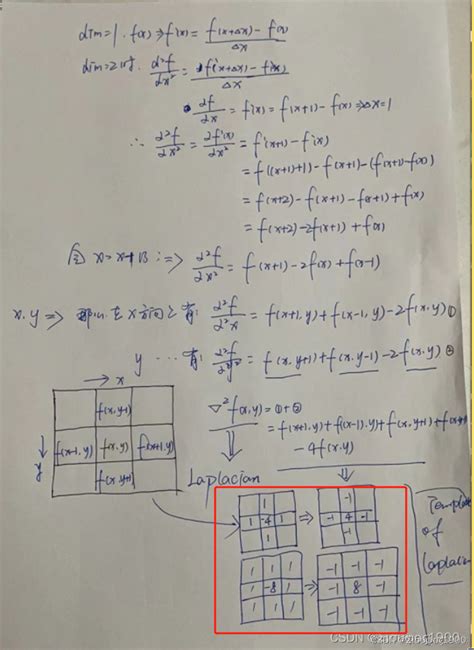 dim=1. f(x) ⇒ f'(x) = f(x+Δx) - f(x) / Δx
dim=2时. ∂²f/∂x² = f'(x+Δx) - f'(x) / Δx
∂f/∂x = f'(x) = f(x+1) - f(x) ⇒ Δx=1
∴ ∂²f/∂x² = ∂f'(x)/∂x² = f'(x+1) - f'(x)
= f((x+1)+1) - f(x+1) - (f(x+1) - f(x))
= f(x+2) - f(x+1) - f(x+1) + f(x)
= f(x+2) - 2f(x+1) + f(x)
令 ⇒ ∂²f/∂x² = f(x+1) - 2f(x) + f(x-1)
x, y ⇒ 那么在x方向上有: ∂²f/∂²x = f(x+1, y) + f(x-1, y) - 2f(x, y) ①
y ... 有: ∂²f/∂²y = f(x, y+1) + f(x, y-1) - 2f(x, y) ②
→ x
∇²f(x,y) = ①+②
f(x, y-1)
= f(x+1, y) + f(x-1, y) + f(x, y+1) +
- 4f(x, y)
f(x-1, y) f(x, y) f(x+1, y)
y
f(x, y+1)
Laplacian
1
1 -4 1
1
⇒
-1
-1 4 -1
-1
1 1 1
1 -8 1
1 1 1
⇒
-1 -1 -1
-1 8 -1
-1 -1 -1
of
Laplacian